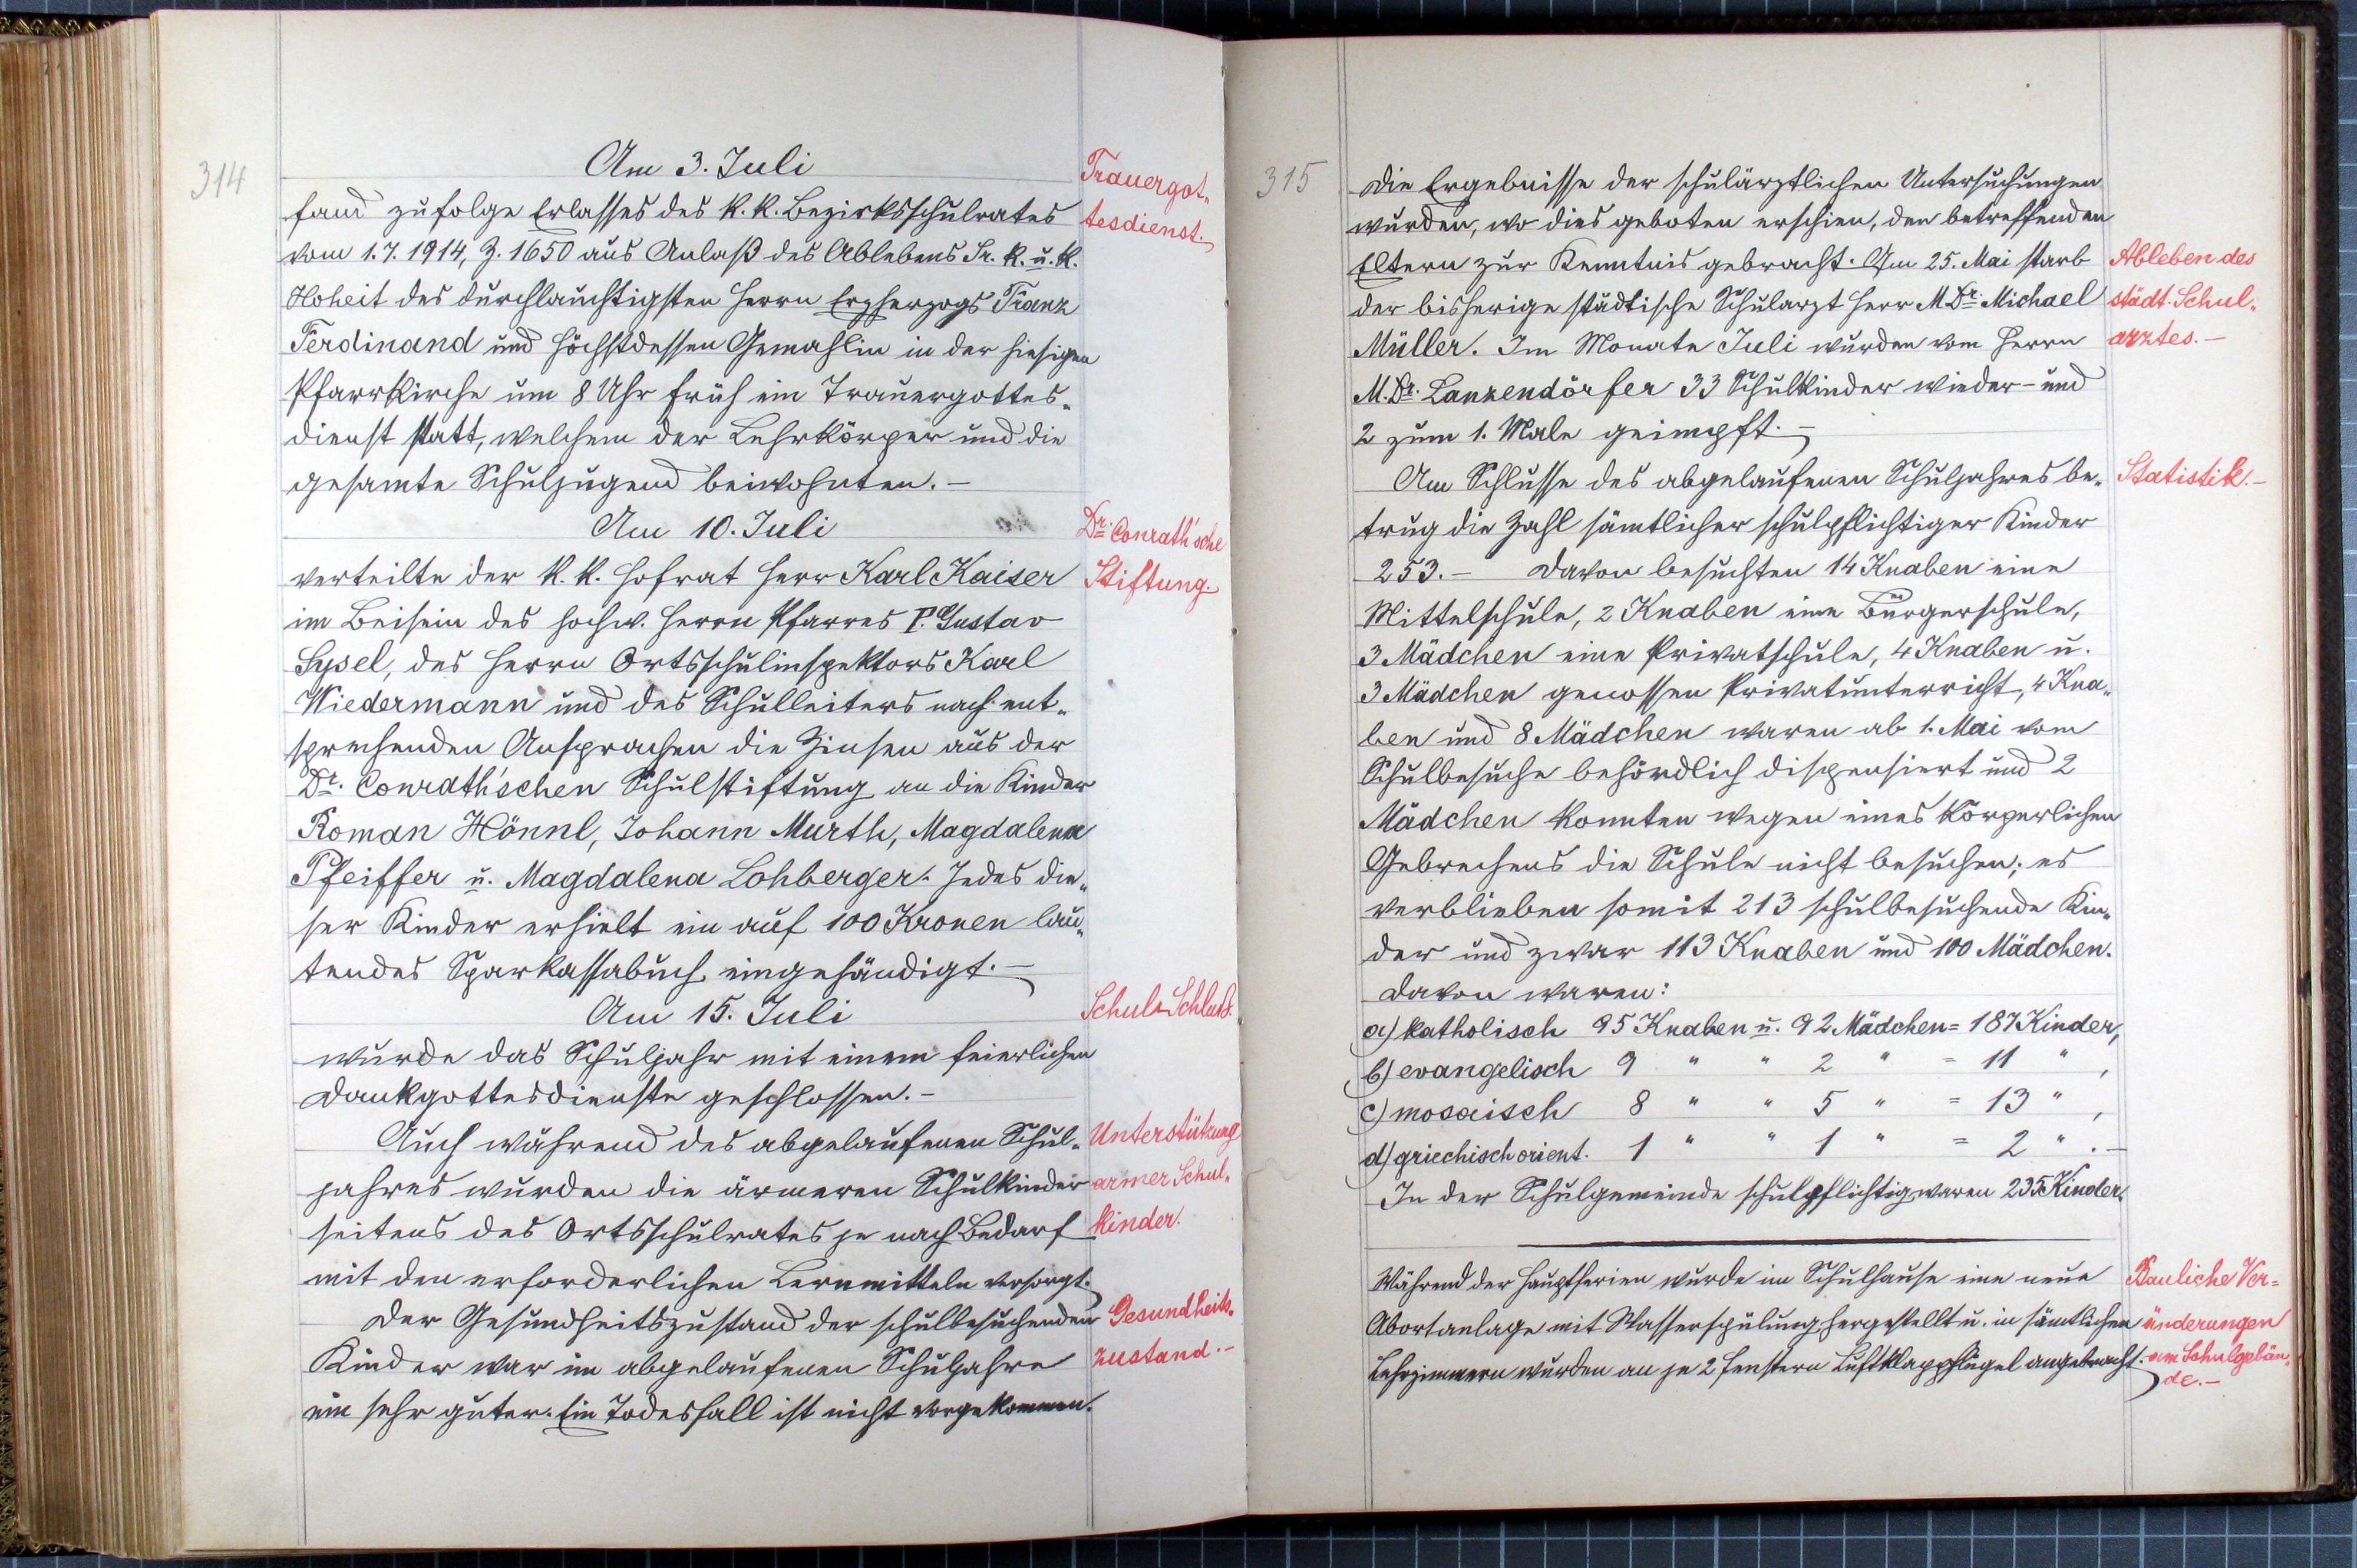 314
Am 3. Juli
Trauergot„
fand zufolge Erlasses des k. k. Bezirksschulrates
tesdienst.
vom 1.7. 1914, Z. 1650 aus Anlaß des Ablebens Sr. k. u. k.
Hoheit des durchlauchtigsten Herrn Erzherzogs Franz
Ferdinand und höchstdessen Gemahlin in der hiesigen
Pfarrkirche um 8 Uhr früh ein Trauergottes„
dienst statt, welchem der Lehrkörper und die
gesamte Schuljugend beiwohnten.–
Am 10. Juli
Dr. Conrath'sche
verteilte der k. k. Hofrat Herr Karl Kaiser
Stiftung.
im Beisein des hochw. Herrn Pfarres P. Gustav
Sysel, des Herrn Ortsschulinspektors Karl
Wiedermann und des Schulleiters nach ent„
sprechenden Ansprachen die Zinsen aus der
Dr. Conrath'schen Schulstiftung an die Kinder
Roman Hönnl, Johann Murth, Magdalena
Pfeiffer u. Magdalena Lohberger. Jedes die„
ser Kinder erhielt ein auf 100 Kronen lau„
tendes Sparkassabuch eingehändigt.–
Am 15. Juli
Schul-Schluß.
wurde das Schuljahr mit einem feierlichen
Dankgottesdienste geschlossen.–
Auch während des abgelaufenen Schul„
Unterstützung
jahres wurden die ärmeren Schulkinder
armer Schul„
seitens des Ortsschulrates je nach Bedarf
kinder.
mit den erforderlichen Lernmitteln versorgt.
Der Gesundheitszustand der schulbesuchenden
Gesundheits„
Kinder war im abgelaufenen Schuljahre
zustand.–
ein sehr guter. Ein Todesfall ist nicht vorgekommen.
315
Die Ergebnisse der schulärztlichen Untersuchungen
wurden, wo dies geboten erschien, den betreffenden
Eltern zur Kenntnis gebracht. Am 25. Mai starb
Ableben des
der bisherige städtische Schularzt Herr M.Dr. Michael
städt. Schul„
Müller. Im Monate Juli wurden vom Herrn
arztes.–
M.Dr. Lanzendörfer 33 Schulkinder wieder- und
2 zum 1. Male geimpft.–
Am Schlusse des abgelaufenen Schuljahres be„
Statistik.–
trug die Zahl sämtlicher schulpflichtiger Kinder
253.– Davon besuchten 14 Knaben eine
Mittelschule, 2 Knaben eine Bürgerschule,
3 Mädchen eine Privatschule, 4 Knaben u.
3 Mädchen genossen Privatunterricht, 4 Kna„
ben und 8 Mädchen waren ab 1. Mai vom
Schulbesuche behördlich dispensiert und 2
Mädchen konnten wegen eines körperlichen
Gebrechens die Schule nicht besuchen; es
verblieben somit 213 schulbesuchende Kin„
der und zwar 113 Knaben und 100 Mädchen.
Davon waren:
a) katholisch 95 Knaben u. 92 Mädchen = 187 Kinder,
b) evangelisch 9 " " 2 " = 11 " ,
c) mosaisch 8 " " 5 " = 13 " ,
d) griechisch orient. 1 " " 1 " = 2 " .–
In der Schulgemeinde schulpflichtig waren 235 Kinder.
Während der Hauptferien wurde im Schulhause eine neue
Bauliche Ver=
Abortanlage mit Wasserspülung hergestellt u. in sämtlichen
änderungen
Lehrzimmern wurden an je 2 Fenstern Luftklappflügel angebracht.
am Schulgebäu„
de.–